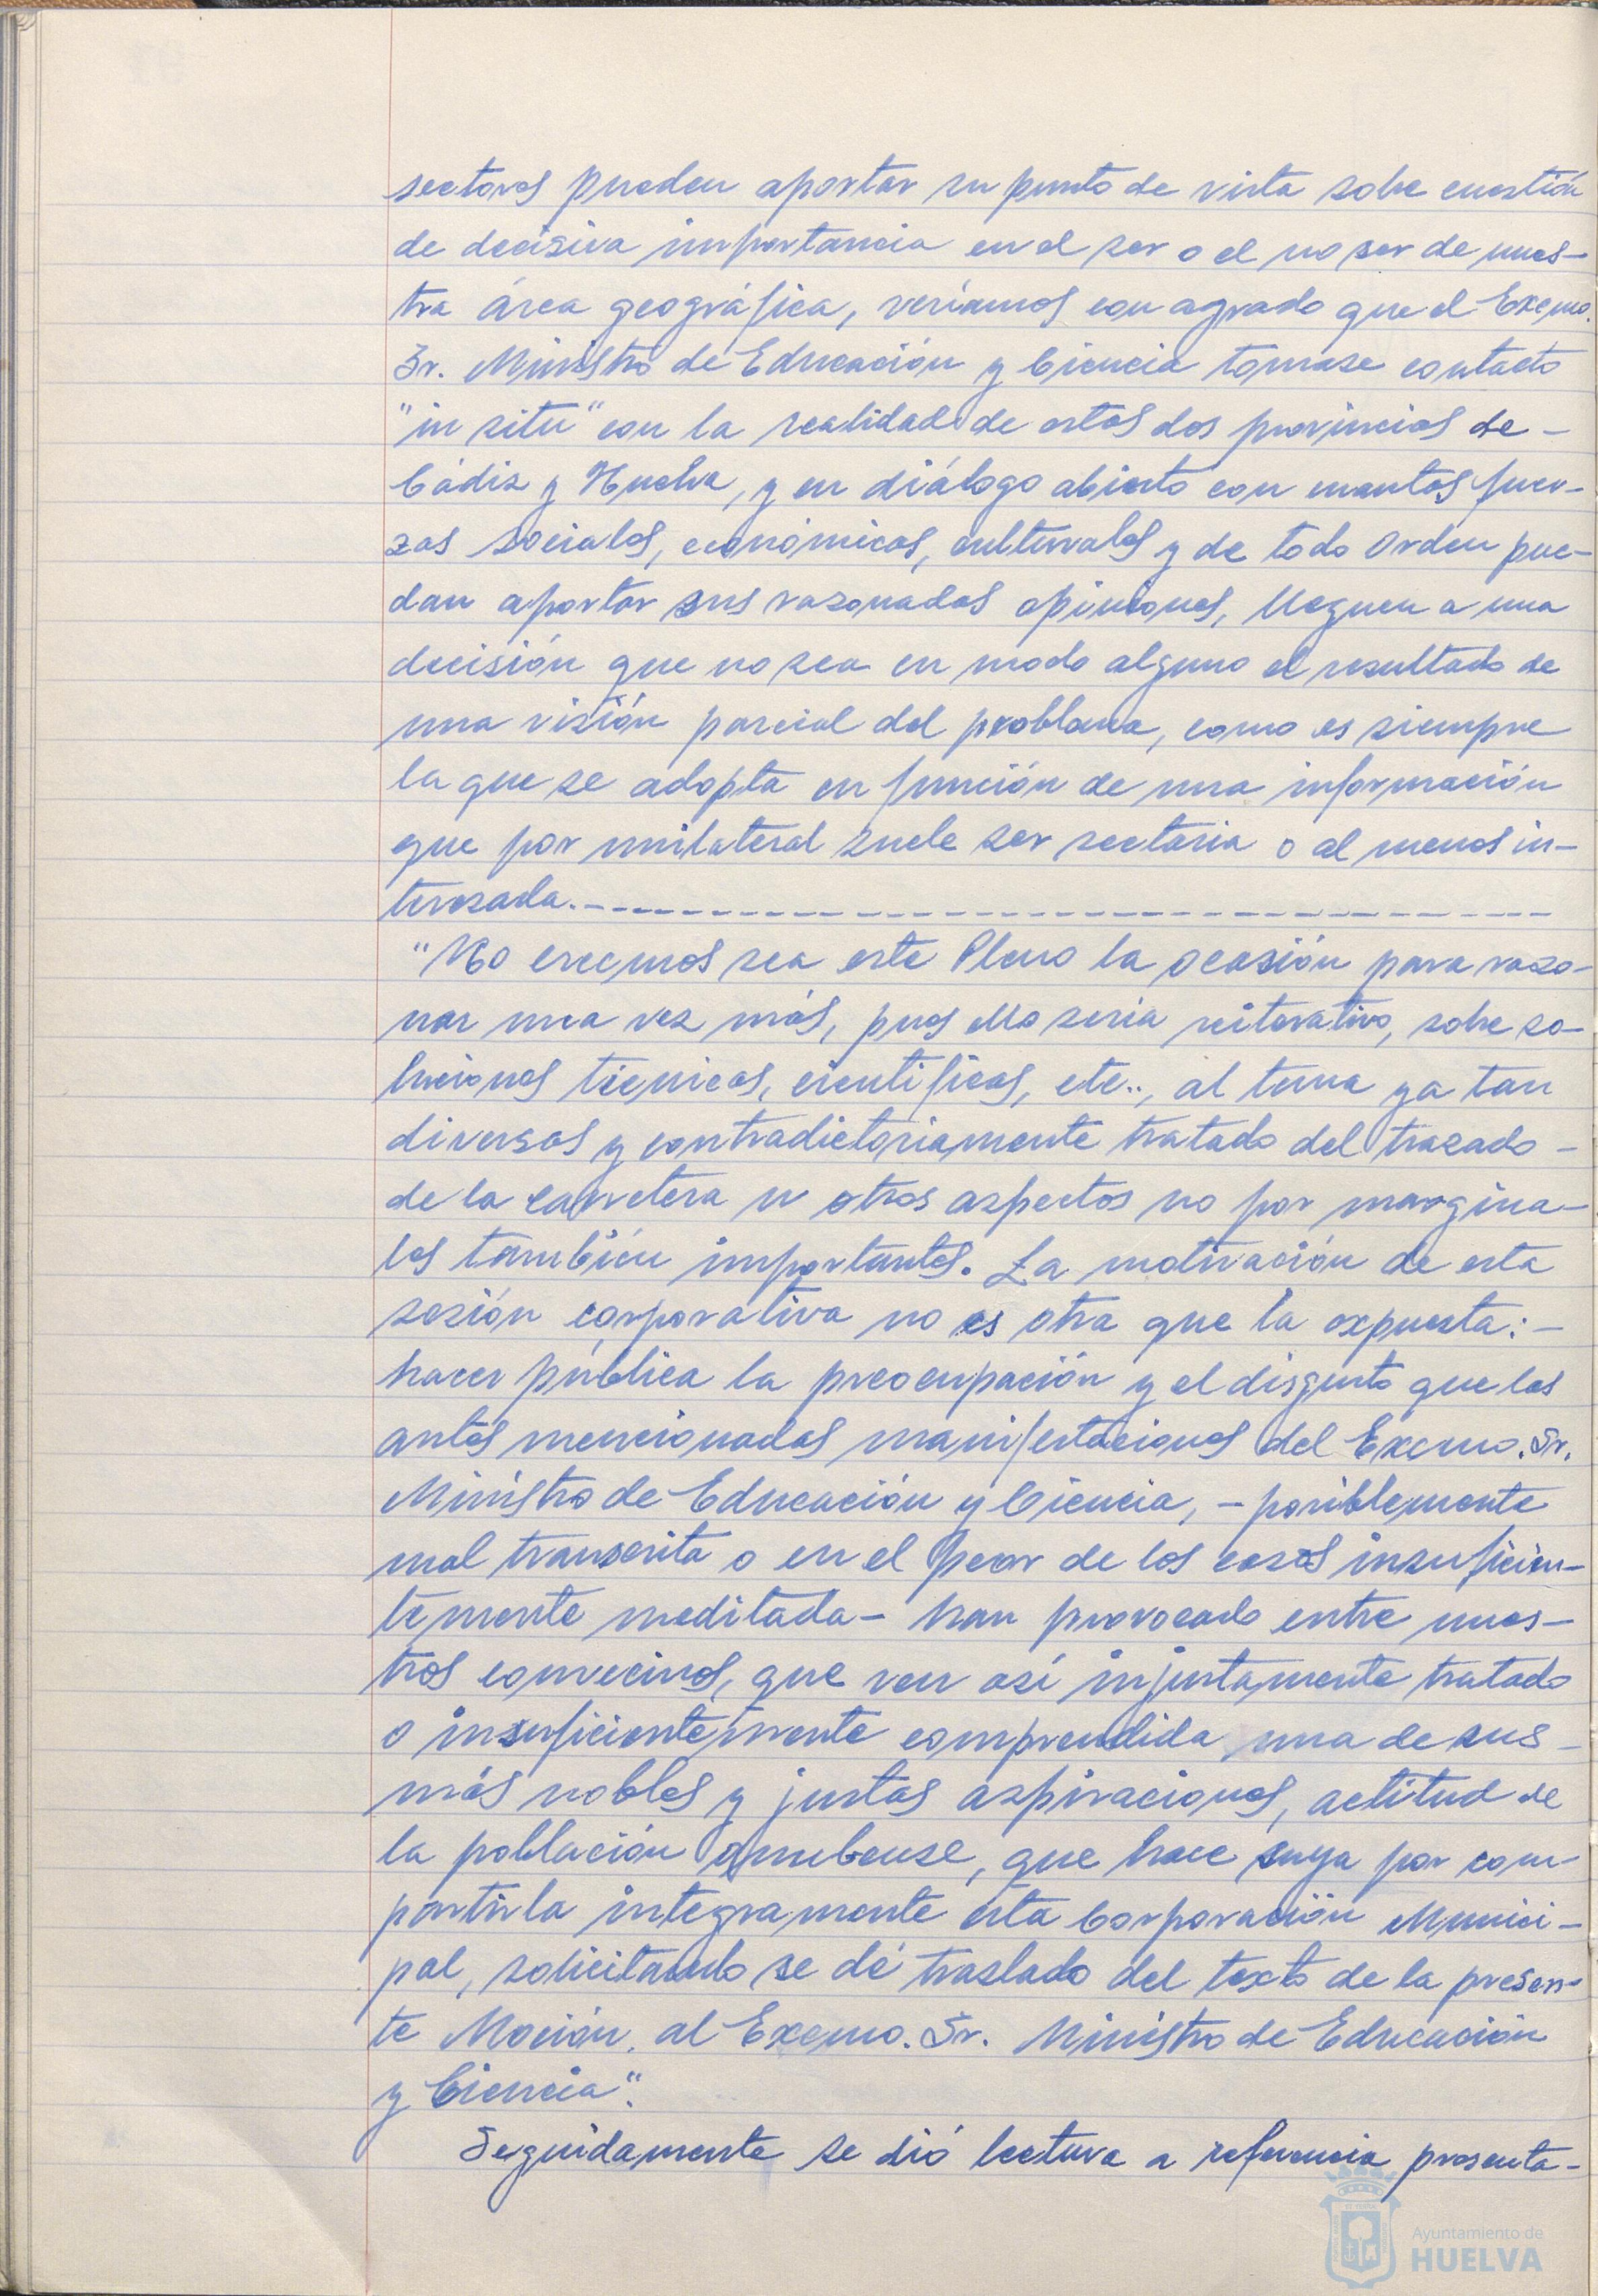 sectores pueden aportar su punto de vista sobre cuestión
de decisiva importancia en el ser o el no ser de nues-
tra área geográfica, veríamos con agrado que el Excmo.
Sr. Ministro de Educación y Ciencia tomase contacto
"in situ" con la realidad de estas dos provincias de -
Cádiz y Huelva, y en diálogo abierto con cuantas fuer-
zas sociales, económicas, culturales y de todo Orden pue-
dan aportar sus razonadas opiniones, lleguen a una
decisión que no sea en modo alguno el resultado de
una visión parcial del problema, como es siempre
la que se adopta en función de una información
que por unilateral suele ser sectaria o al menos in-
teresada.-
"No creemos sea este Pleno la ocasión para razo-
nar una vez más, pues ello sería reiterativo, sobre so-
luciones técnicas, científicas, etc.., al tema ya tan
diversas y contradictoriamente tratado del trazado -
de la carretera u otros aspectos no por margina-
les también importantes. La motivación de esta
sesión corporativa no es otra que la expuesta: -
hacer pública la preocupación y el disgusto que las
antes mencionadas manifestaciones del Excmo. Sr.
Ministro de Educación y Ciencia, - posiblemente
mal transcrita o en el peor de los casos insuficien-
temente meditada - han provocado entre nues-
tros convecinos, que ven así injustamente tratado
o insuficientemente comprendida una de sus -
más nobles y justas aspiraciones, actitud de
la población onubense, que hace suya por com-
partirla integramente esta Corporación Munici-
pal, solicitando se dé traslado del texto de la presen-
te Moción, al Excmo. Sr. Ministro de Educación
y Ciencia".
Seguidamente se dió lectura a referencia presenta-
Ayuntamiento de
HUELVA